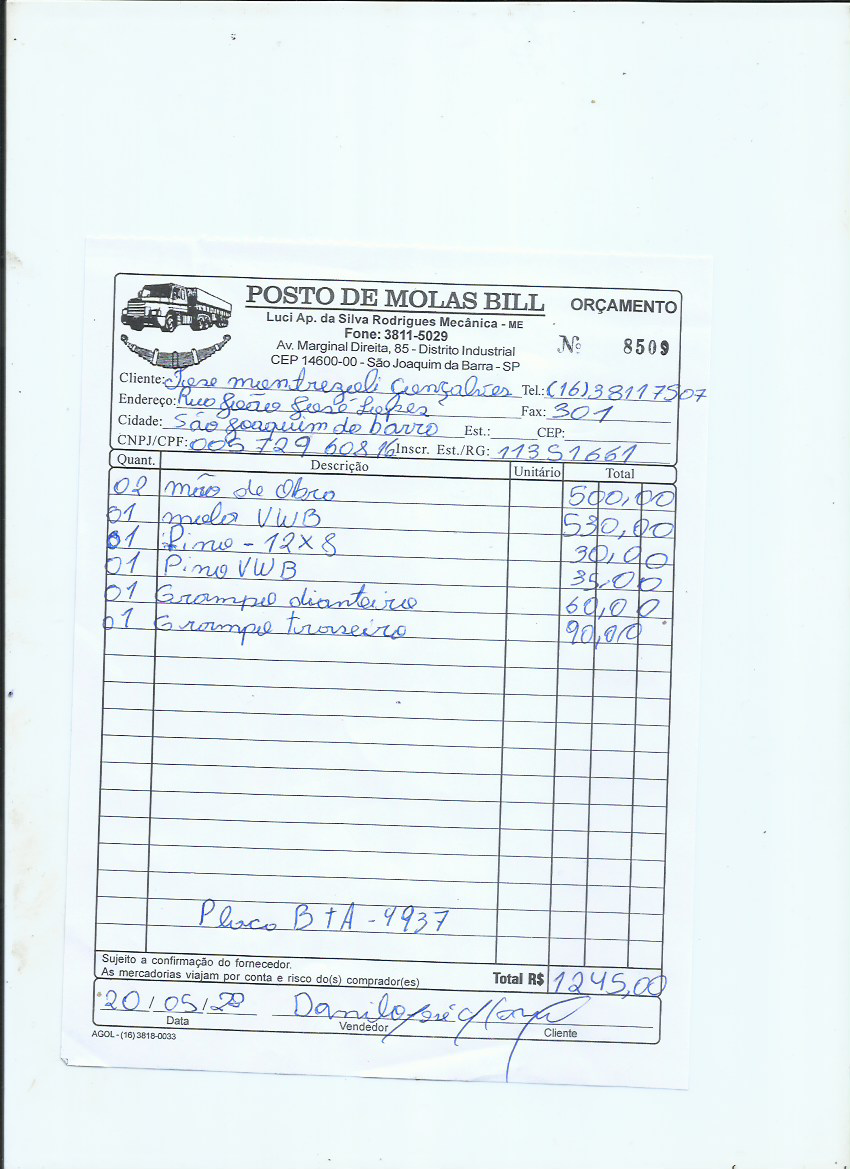 POSTO DE MOLAS BILL ORÇAMENTO
Luci Ap. da Silva Rodrigues Mecânica - ME
Fone: 3811-5029
Nº 8509
Av. Marginal Direita, 85 - Distrito Industrial
CEP 14600-00 - São Joaquim da Barra - SP
Cliente: Jose montrezoli Gonçalves Tel.: (16) 38117507
Endereço: Rua João José Lopes Fax: 301
Cidade: São Joaquim da barra Est.: CEP:
CNPJ/CPF: 005 729 608 16 Inscr. Est./RG: 11351661
Quant. Descrição Unitário Total
02 mão de Obra 500,00
01 mola VWB 530,00
01 Pino - 12x8 30,00
01 Pino VWB 35,00
01 Grampo dianteiro 60,00
01 Grampo traseiro 90,00
Placa BTA - 4937
Sujeito a confirmação do fornecedor.
As mercadorias viajam por conta e risco do(s) comprador(es) Total R$ 1245,00
20/05/ Danilo José
Data Vendedor Cliente
AGOL - (16) 3818-0033